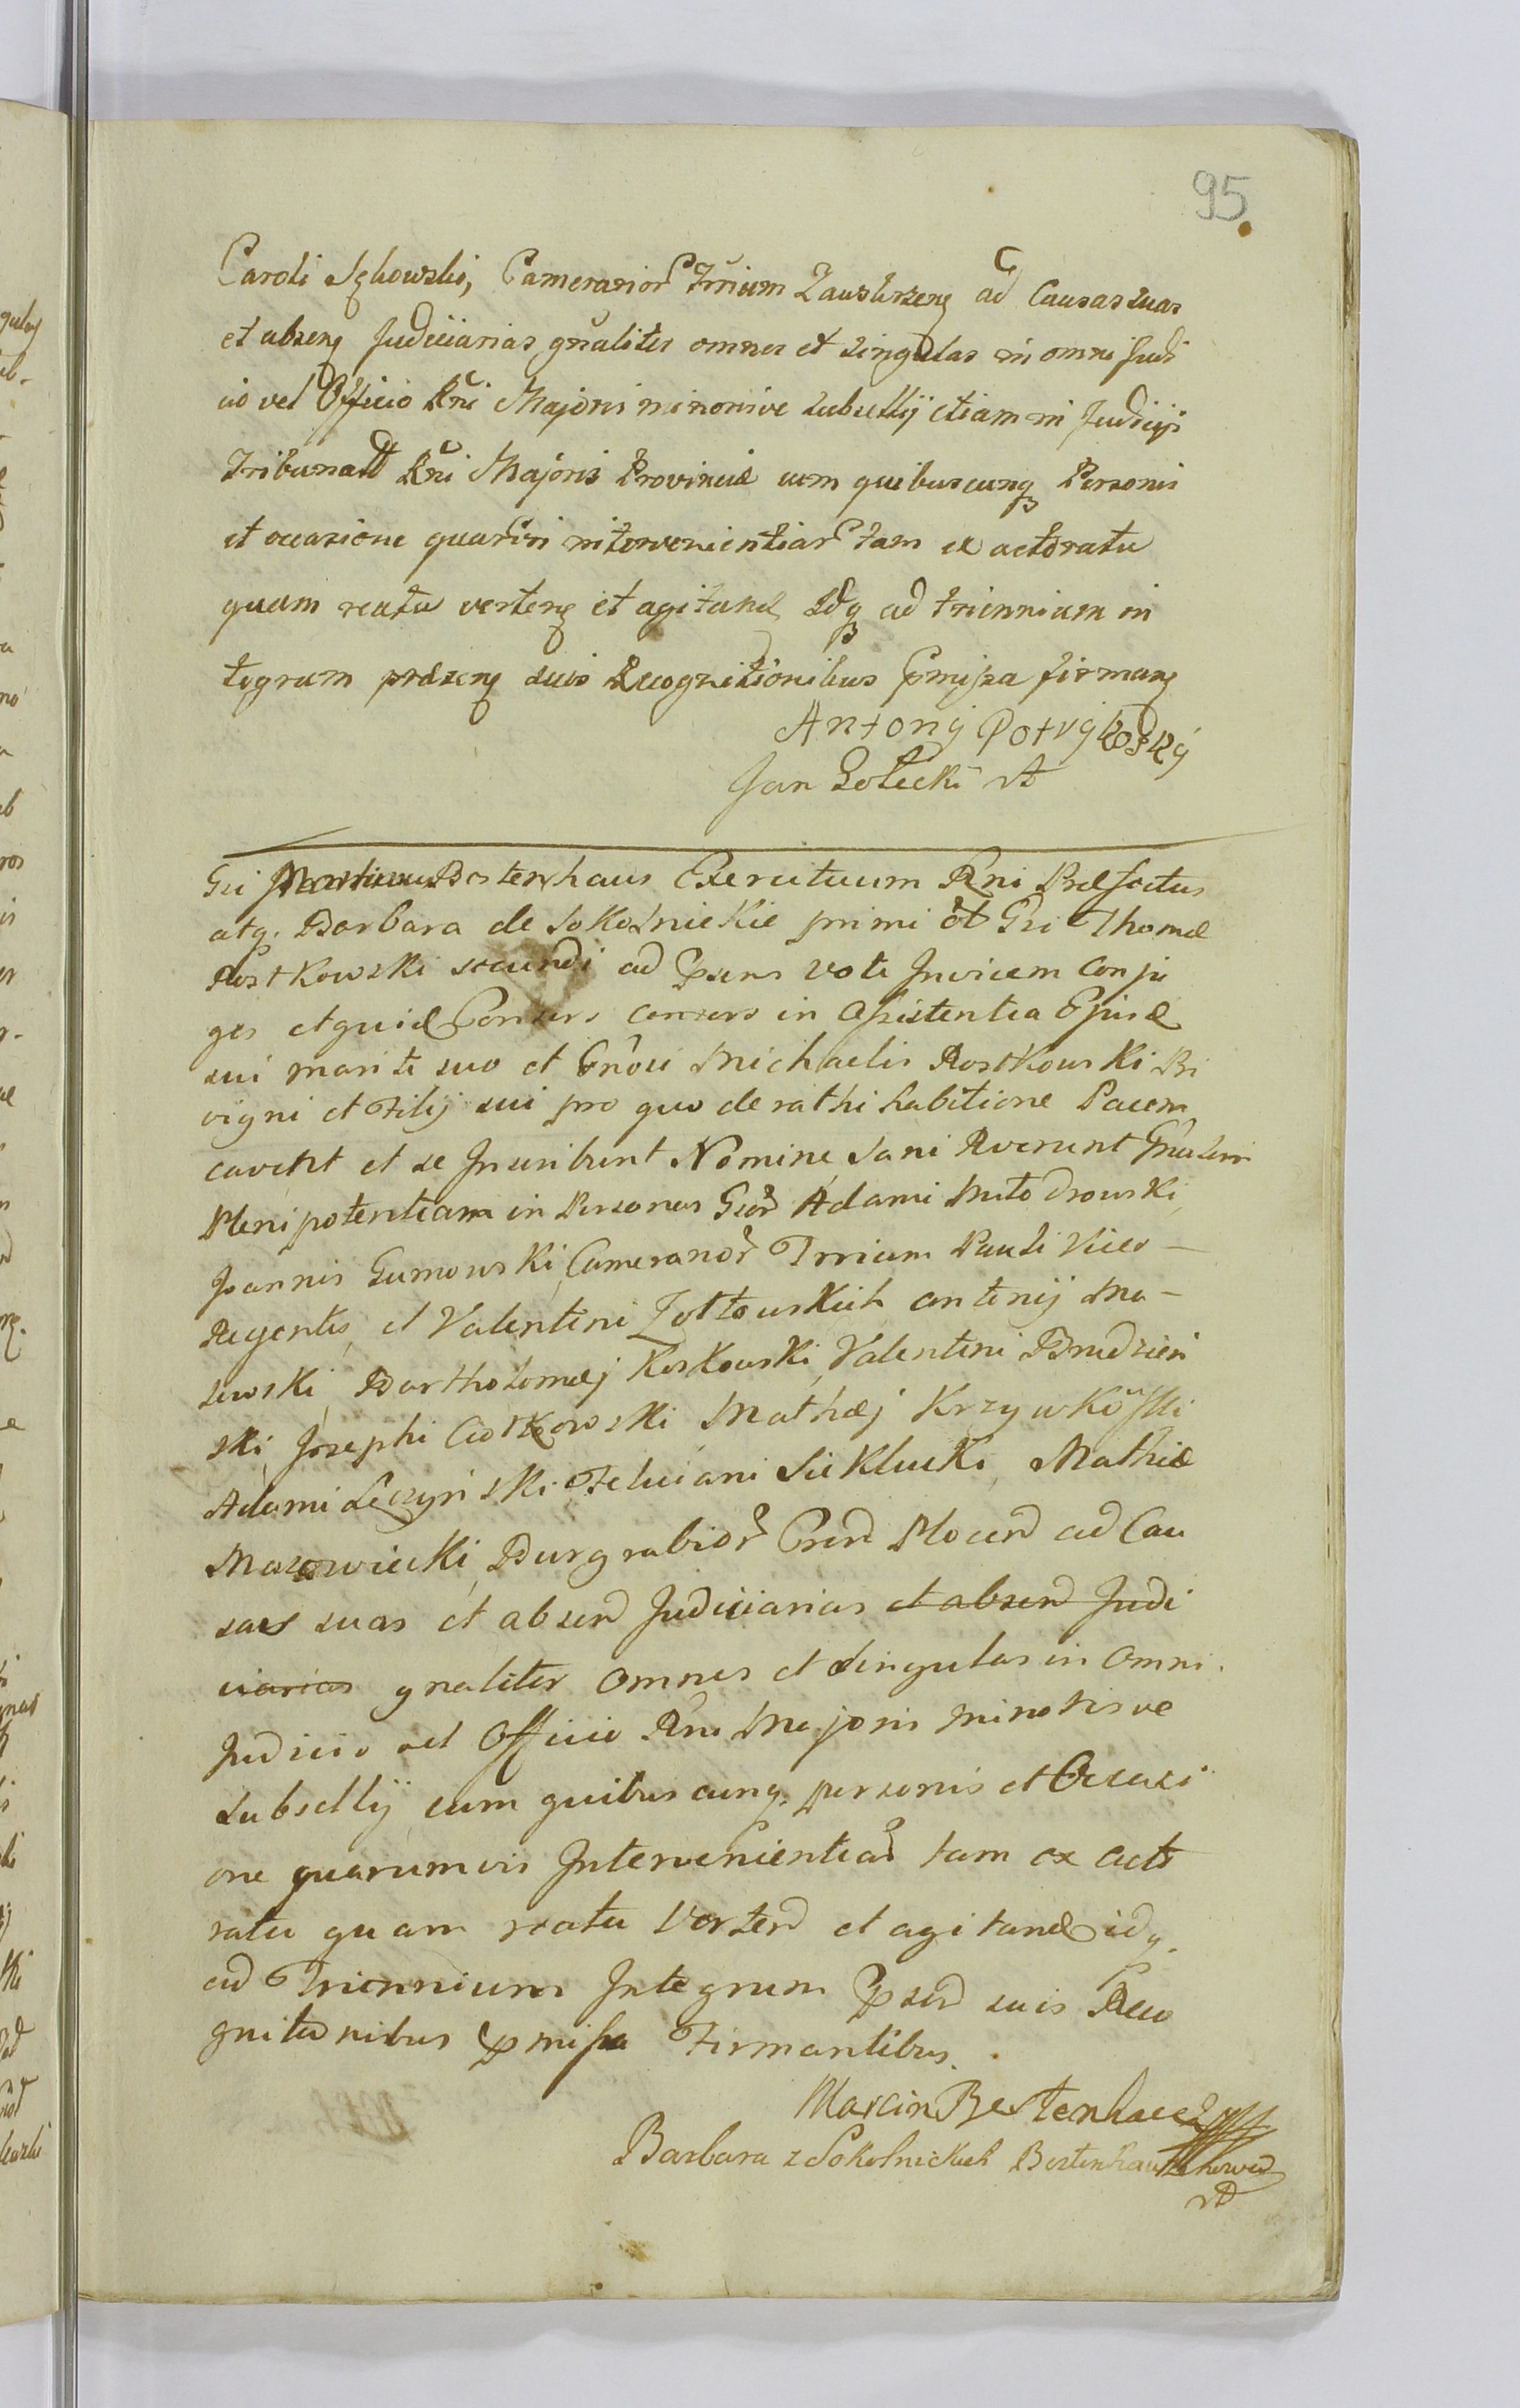 95.
Caroli Sękowski, Camerarior Trrium Zawskrzeng ad Causas suas
et absenꝫ Judiciarias gnaliter omnes et singulas in omni Judi
cio vel Officio Rni Majoris minorisve subsellij etiam in Judicijs
Tribunalit Rni Majoris Provinciæ cum quibuscunqꝫ Personis
et occasione quarvis intervenientiar tam ex actoratu
quam reatu vertenꝫ et agitand Idqꝫ ad triennium in
tegrum præsenꝫ suis Recognitionibus Pmissa firmanꝫ
Antony
Jan Zołecki
Gsi Martinus Bestenhaus Exercituum Rni Præfectus
atq. Barbara de Sokolnickie primi et Gsi Thomæ
Rostkowski secundi ad Psens voti Invicem Conju
ges et quidem Consors in Assistentia Ejusd
sui mariti suo et Gnosi Michaelis Rostkowski Pri
vigni et Filij sui pro quo de rathi habitione Pacem
cavent et se Inscribunt Nomine Sani Rverunt Gnalem
Plenipotentiam in Personas Gsor Adami Młodrowski,
Joannis Gumowski, Camerarior Trrium Pauli Vices-
Regentis, et Valentini Zołtowskich Antonij Ma-
sewski, Bartholomæj Koskowski, Valentini Brudzień
ski, Josephi Ciotkowski Mathæj Krzywkoski
Adami Łęczyński Feliciani Sieklucki, Mathiæ
Mazowiecki, Burgrabior Crend Plocend ad Cau
sas suas et absend Judiciarias et absend Judi
ciarias gnaliter Omnes et singulas in Omni
Judicio vel Officio Rni Majoris minorisve
subsellij cum quibuscunq. personis et Occasi
one quarumvis Intervenientiar tam ex acto
ratu quam reatu Vertend et agitand idq.
ad Triennium Integrum Psend suis Reco
gnitionibus Pmissa Firmantibus.
Marcin Bestenhaus
Barbara z Sokolnickich Bestenhauzehowa